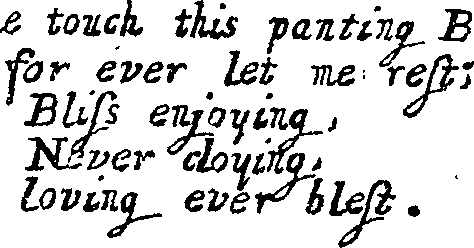 e touch this panting B
for ever let me reſt;
Bliſs enjoying,
Never cloying,
loving ever bleſt.